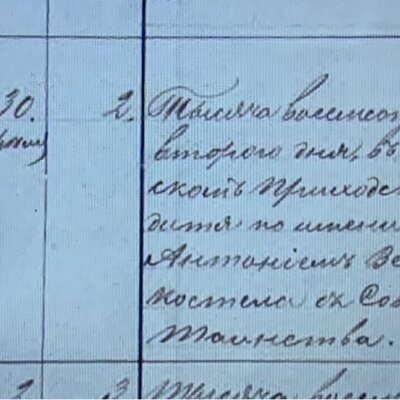 30. 2. Тысяча восемсо
втораго дня, въ
скомъ Приходс
дитя по имени
Антоніемъ Ве
костела съ Сов
Таинства.
2 3 Тысяча восем